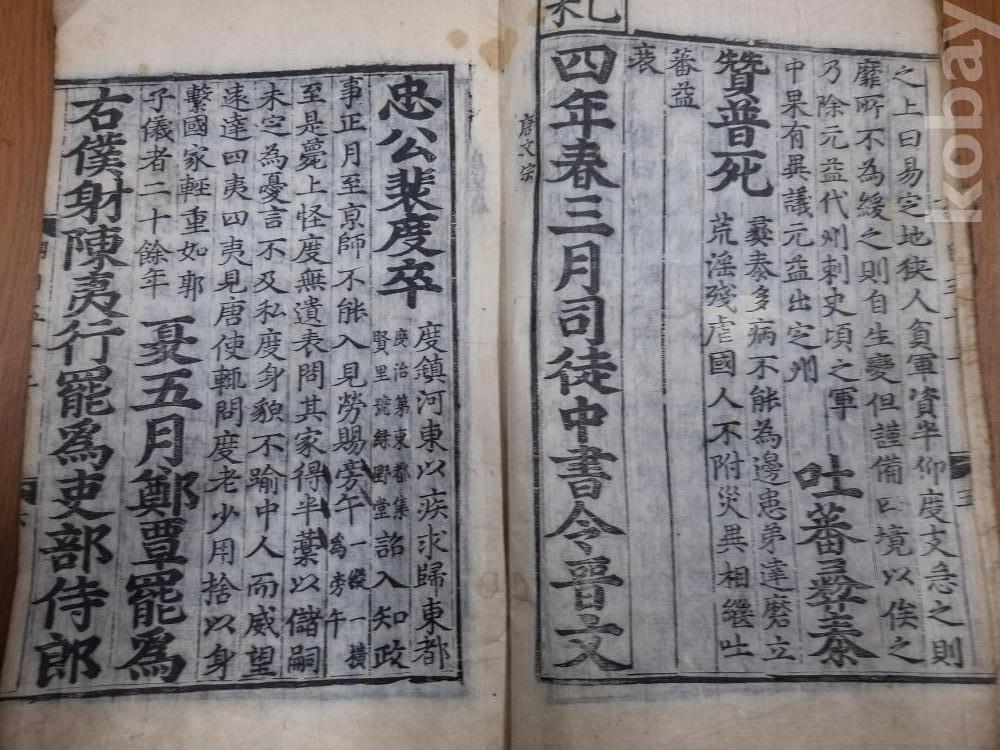 之上曰易定地狹人貧軍資半仰度支急之則
靡所不為緩之則自生變但謹備四境以俟之
乃除元益代州刺史頃之軍
中果有異議元益出定州
吐蕃彝泰
贊普死
彝泰多病不能為邊患弟達磨立
荒淫殘虐國人不附災異相繼吐
蕃益
衰
己未
四年春三月司徒中書令晉文
唐文宗
忠公裴度卒
度鎮河東以疾求歸東都
廣治第東都集
賢里號綠野堂
詔入知政
事正月至京師不能入見勞賜旁午
一縱一橫
為旁午
至是薨上怪度無遺表問其家得半藁以儲嗣
未定為憂言不及私度身貌不踰中人而威望
遠達四夷四夷見唐使輒問度老少用捨以身
繫國家輕重如郭
子儀者二十餘年
夏五月鄭覃罷為
右僕射陳夷行罷為吏部侍郎
kobay